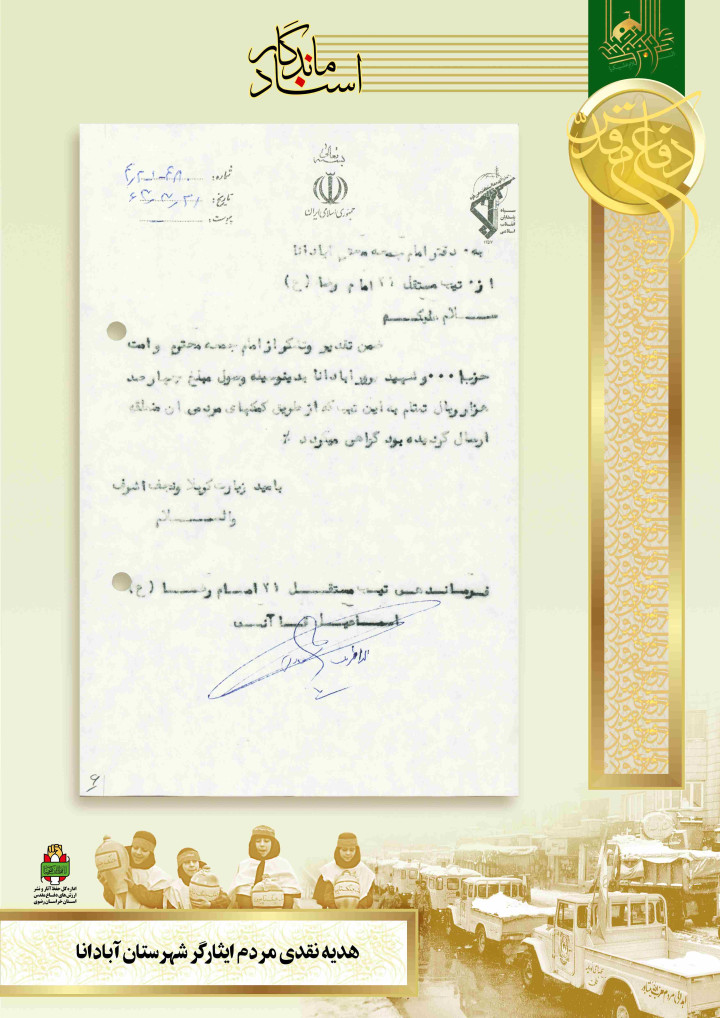 اسناد ماندگار
دفاع مقدس
بسمه تعالی
جمهوری اسلامی ایران
شماره:
تاریخ:
پیوست:
سپاه
پاسداران
انقلاب
اسلامی
به: دفتر امام جمعه محترم آبادانا
از: تیپ مستقل ۲۱ امام رضا (ع)
سلام علیکم
ضمن تقدیر وتشکر از امام جمعه محترم و امت
حزب‌ا... و شهید پرور آبادانا بدینوسیله وصول مبلغ چهارصد
هزار ریال تمام به این تیپ که از طریق کمکهای مردمی آن منطقه
ارسال گردیده بود گواهی میگردد ٪
بامید زیارت کربلا ونجف اشرف
والسلام
فرمانده تیپ مستقل ۲۱ امام رضا (ع)
اسماعیل قاآنی
۶
اداره کل حفظ آثار و نشر
ارزش های دفاع مقدس
استان خراسان رضوی
هدیه نقدی مردم ایثارگر شهرستان آبادانا